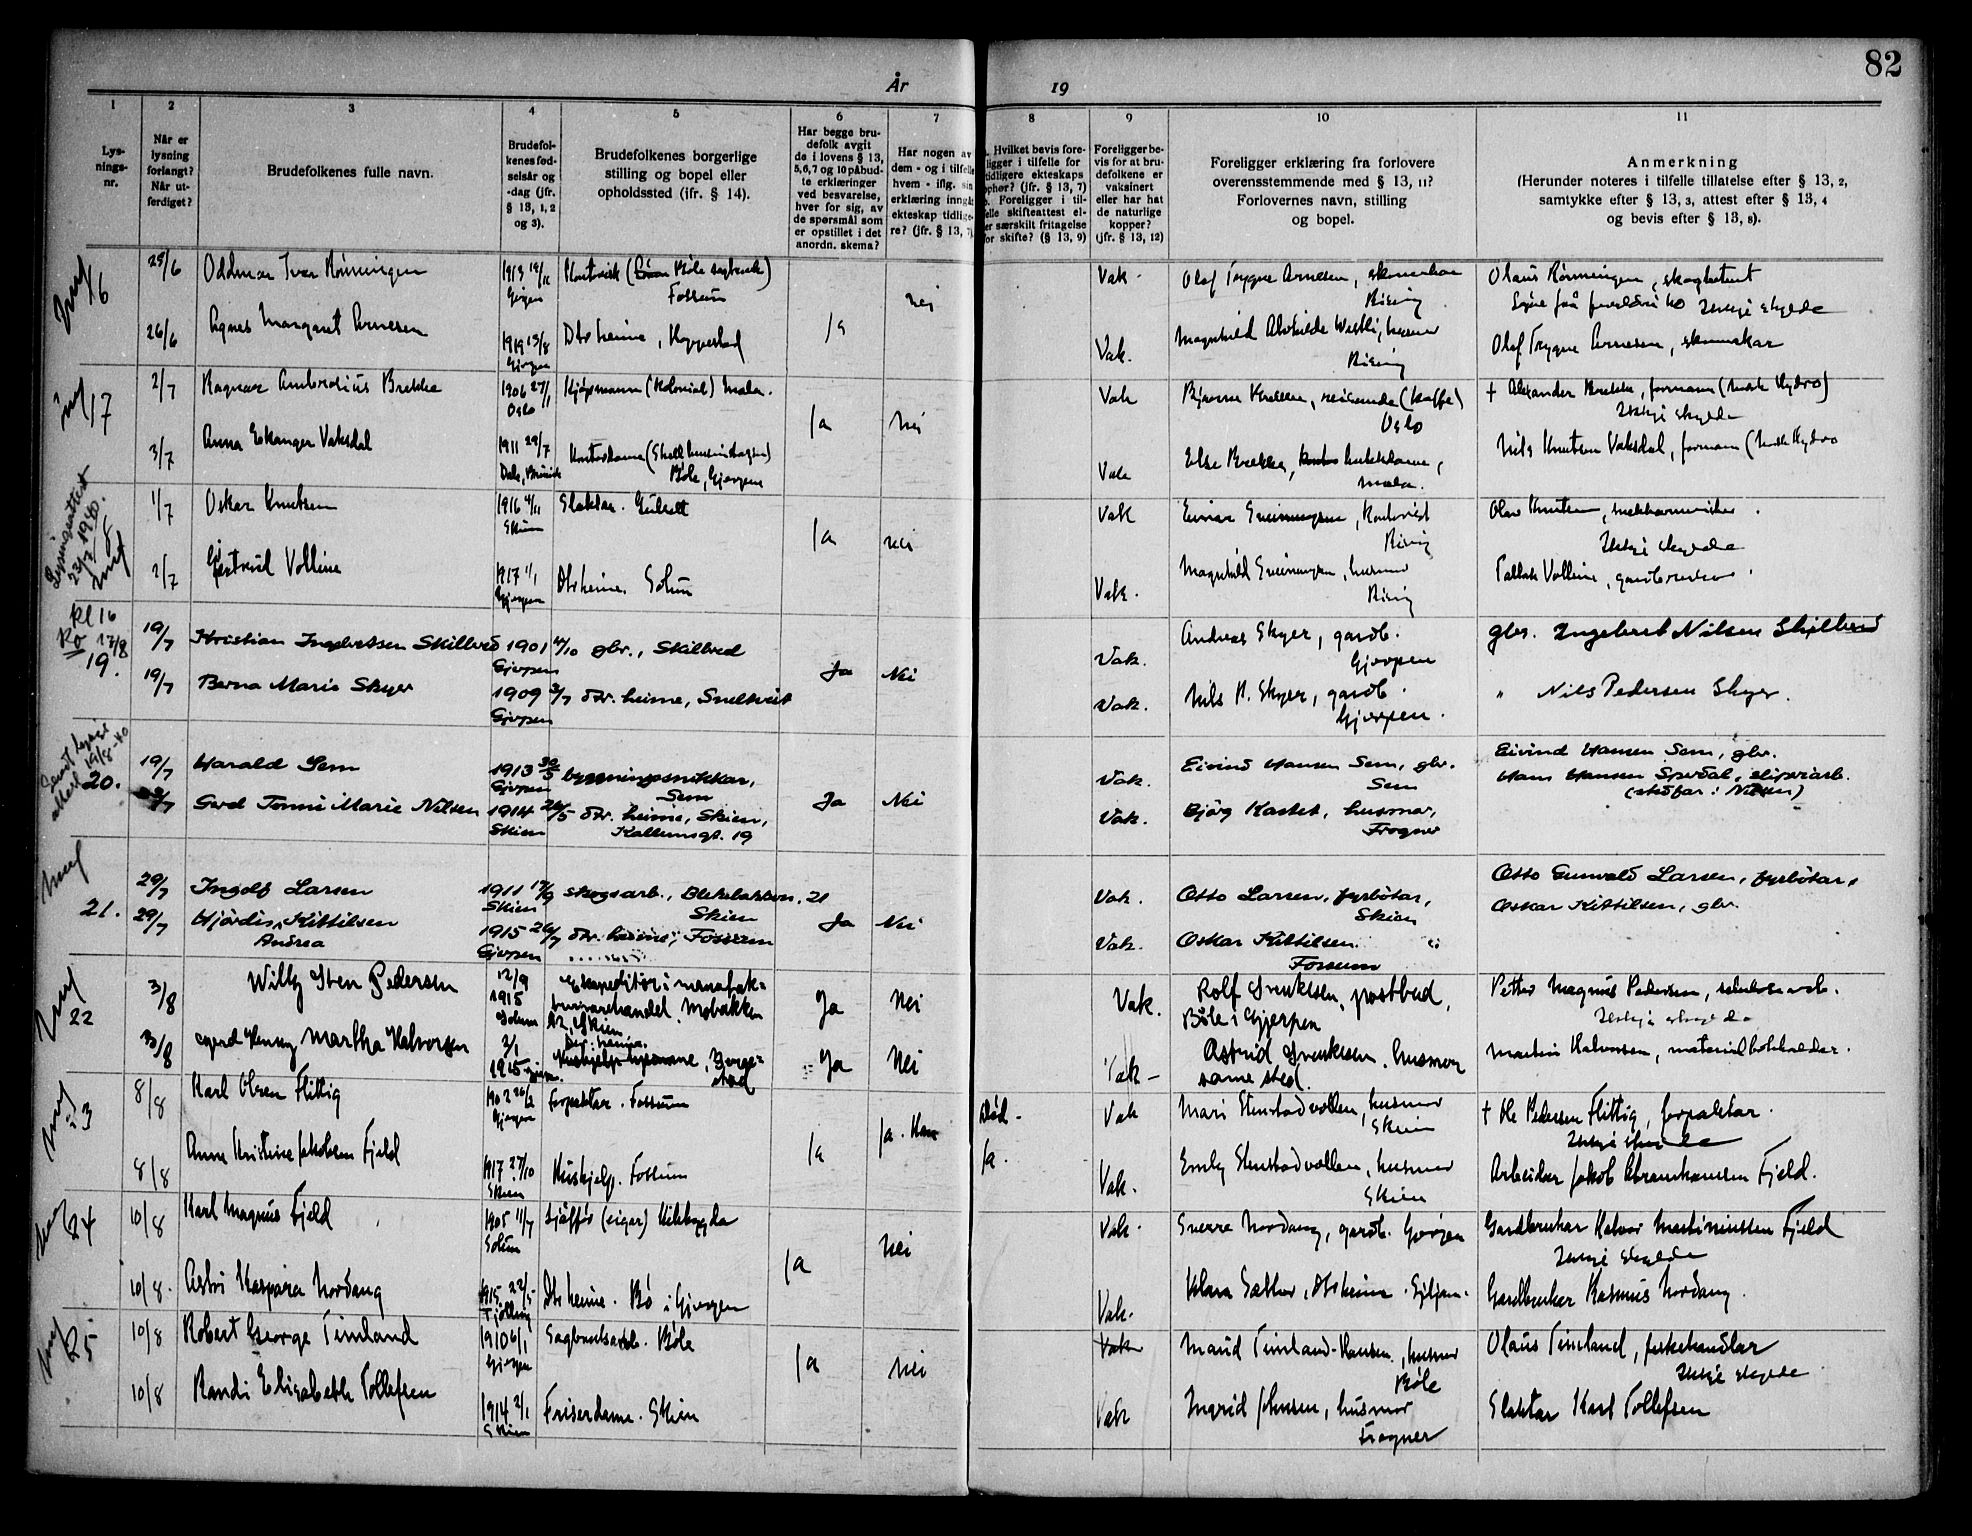 82
År 19
1 2 3 4 5 6 7 8 9 10 11
Lysningsnr.
Når er lysning forlangt? Når utferdiget?
Brudefolkenes fulle navn.
Brudefolkenes fødselsår og -dag (jfr. § 13, 1, 2 og 3).
Brudefolkenes borgerlige stilling og bopel eller opholdssted (jfr. § 14).
Har begge brudefolk avgit de i lovens § 13, 5,6,7 og 10 påbudte erklæringer ved besvarelse, hver for sig, av de spørsmål som er opstillet i det anordn. skema?
Har nogen av dem - og i tilfelle hvem - iflg. sin erklæring inngått ekteskap tidligere? (jfr. § 13, 7)
Hvilket bevis foreligger i tilfelle for tidligere ekteskaps ophør? (jfr. § 13, 7)
Foreligger i tilfelle skifteattest eller særskilt fritagelse for skifte? (§ 13, 9)
Foreligger bevis for at brudefolkene er vaksinert eller har hat de naturlige kopper? (jfr. § 13, 12)
Foreligger erklæring fra forlovere overensstemmende med § 13, 11? Forlovernes navn, stilling og bopel.
Anmerkning
(Herunder noteres i tilfelle tillatelse efter § 13, 2, samtykke efter § 13, 3, attest efter § 13, 4 og bevis efter § 13, 8).
16 25/6 Oddmar Ivar Rønningen 1913 Gjerpen Fossum nei Vak. Olaf Trygve Arnesen, skomakar Rising Olaus Rønningen,
Ikkje skylde
26/6 Agnes Margaret Arnesen 1919 13/8 Gjerpen Dtr heime, Ja Vak. Magnhild Alvhilde Westli, husmor Rising Olaf Trygve Arnesen, skomakar
17 2/7 Ragnar Ambrosius Brekke 1906 27/1 Oslo Kjøpmann (Kolonial) Mæla. Ja Nei Vak Bjarne reisande (Kaffe) Oslo † Alexander Brekke, formann (Norsk Hydro)
Ikkje skylde
3/7 Anna Vaksdal 1911 29/7 Kontordame Bøle, Gjerpen Vak Else Brekke, Mæla. Nils Knutsen Vaksdal, formann (Norsk Hydro
Lysingsattest 23/7 1940.
1/7 Oskar Knutsen 1916 4/11 Skien Slaktar. Gulset Ja nei Vak Einar Kontorist Rising Olav Knutsen,
Ikkje skylde
2/7 Gjertrud Volline 1917 1/1 Gjerpen Dtr heime. Solum Vak. Magnhild husmor Rising Tallak Volline, gardbrukar.
kl 16 17/8
19. 19/7 Kristian Ingebretsen Skilbred 1901 4/10 Gjerpen gbr., Skilbred Ja Nei Vak. Andreas Skyer, gardb. Gjerpen gbr. Ingebret Nilsen Skilbred
19/7 Berna Marie Skyer 1909 3/7 Gjerpen dtr. heime, Sneltvedt Vak. Nils P. Skyer, gardb. Gjerpen. " Nils Pedersen Skyer.
Sendt lysingsattest 19/8-40
20. 19/7 Harald Sem 1913 30/3 Gjerpen bygningssnikkar, Sem Ja Nei Vak. Eivind Hansen Sem, gbr. Sem Eivind Hansen Sem, gbr.
Hans Hansen Sperdal, sliperiarb.
(stéfar: Nilsen)
Gerd Tonni Marie Nilsen 1914 26/5 Skien dtr. heime, Skien, Kallumsgt. 19 Vak. Bjørg Kastet, husmor, Frogner
21. 29/7 Ingolf Larsen 1911 17/9 Skien skogsarb., Blekebakken, 21 Skien Ja Nei Vak. Otto Larsen, fyrbötar, Skien Otto Gunvald Larsen, fyrbötar,
29/7 Hjördis Andrea Kittilsen 1915 26/7 Gjerpen dtr. heime, Fossum Vak. Oskar Kittilsen " Fossum Oskar Kittilsen, gbr.
22 3/8 Willy Sten Pedersen 12/9 1915 Solum Ekspeditør i manufakturvarehandel. Mobakken Skien Ja Nei Vak. Rolf postbud, Bøle i Gjerpen Petter Magnus Pedersen,
Ikkje skylde
3/8 Gerd Henny Martha Halvorsen 2/1 1915 Dtr: heime. Borgestad Ja Nei Vak – Astrid husmor samme sted. Martin Halvorsen, materialforvalter.
23 8/8 Karl Olsen Flittig 1902 26/2 Gjerpen Forpaktar. Fossum Ja Ja. Han Død. Vak Mari Stenstadvollen, husmor Skien † Ole Pedersen Flittig, forpaktar.
Ikkje skylde
8/8 Anne Kristine Jakobsen Fjeld 1917 27/10 Skien Huskjelp. Fossum Ja. Vak. Emly Stenstadvollen, husmor Skien Arbeidar Jakob Abrahamsen Fjeld.
24 10/8 Karl Magnus Fjeld 1905 11/7 Solum Sjåffør (eigar) Kikbygda Ja Nei Vak. Sverre Nordang, gardb. Gjerpen Gardbrukar Halvor Martiniussen Fjeld
Ikkje skylde
10/8. Astri Kaspara Nordang 1915 22/5 Tjølling Dtr heime. Bø i Gjerpen Vak. Klara Sæther, Dtr heime. Gardbruker Rasmus Nordang.
25 10/8 Robert George Timland 1910 6/1 Gjerpen Sagbruksarb. Bøle Ja Nei Vak Maud Timland-Hansen, husmor Bøle Olaus Timland, fiskehandlar
Ikkje skylde
10/8 Randi Elisabeth Tollefsen 1914 2/1 Skien Friserdame. Skien Vak Ingrid Johnsen, husmor Frogner Slaktar Karl Tollefsen